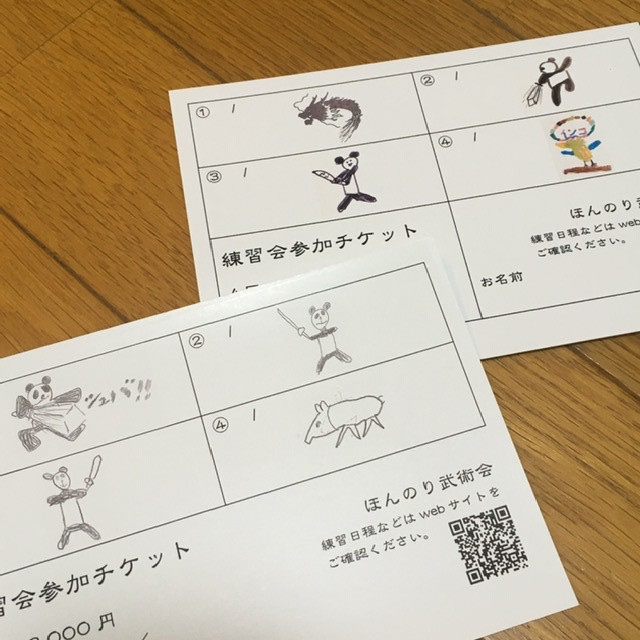 ① /
② /
③ /
④ /
インコ
練習会参加チケット
ほんのり
練習日程などは web
ご確認ください。
お名前
シュバ!!
② /
④ /
ほんのり武術会
練習日程などは web サイトを
ご確認ください。
習会参加チケット
,000 円